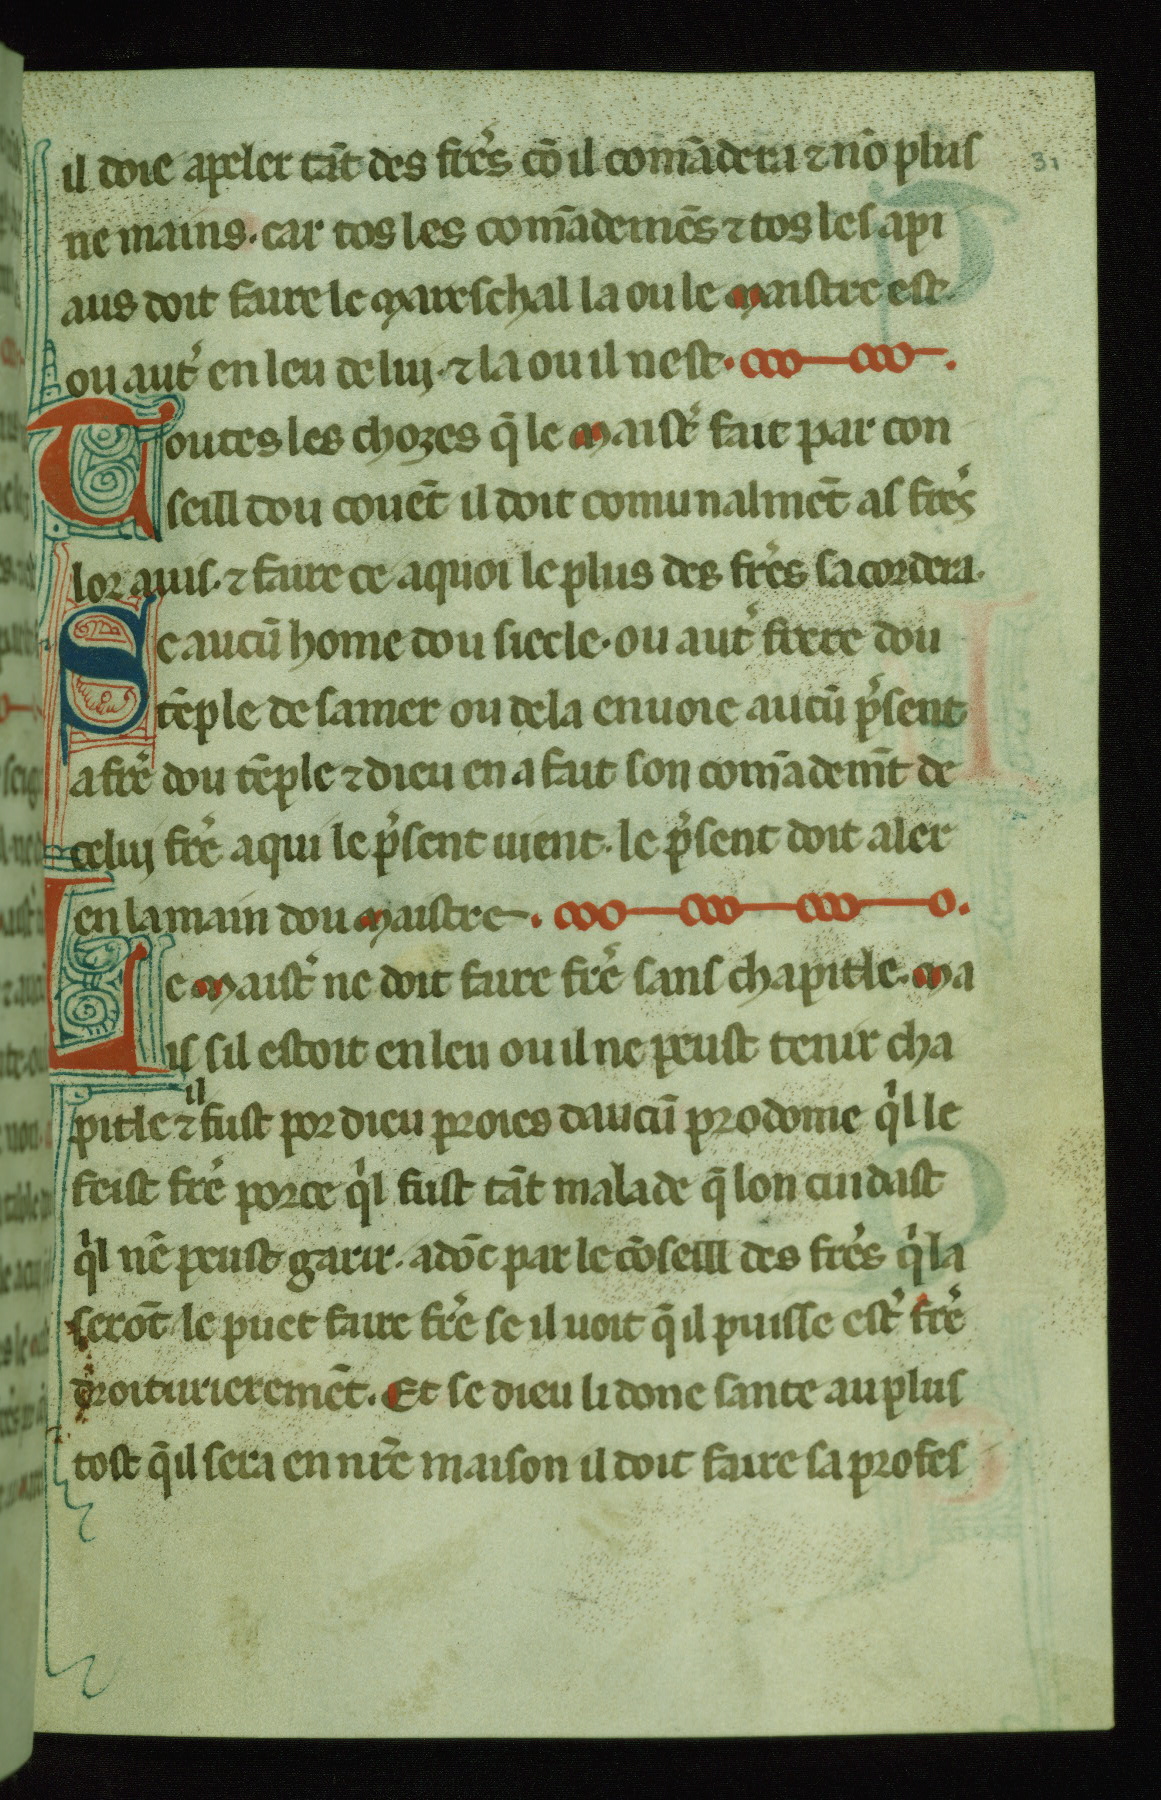 il doie apeler tāt des fre͛s cō il comādera ⁊ nō plus
31
ne mains. car tos les comādemēs ⁊ tos les api
aus doit faire le mareschal la ou le maistre est.
ou aut͛ en leu de luy. ⁊ la ou il nest.
Toutes les chozes q̄ le maist͛ fait par con
seill dou couēt il doit comunalmēt as fre͛s
lor auis. ⁊ faire ce a quoi le plus des fre͛s sacordera.
Se aucū home dou siecle. ou aut͛ frere dou
tēple de sa mer ou dela enuoie aucū p͛sent
a fre͛ dou tēple ⁊ dieu en a fait son comādemt̄ de
celuy fre͛ a qui le p͛sent uient. le p͛sent doit aler
en la main dou maistre.
Le maist͛ ne doit faire fre͛ sans chapitle. ma
is sil estoit en leu ou il ne peust tenir cha
il
pitle ⁊ fust por dieu proies daucū prodome qⁱl le
feist fre͛ por ce qⁱl fust tāt malade q̄ lon cuidast
qⁱl nē peust garir. adōc par le cōseill des fre͛s qⁱ la
serōt le puet faire fre͛ se il uoit q̄ il puisse est͛ fre͛
droiturieremēt. Et se dieu li done sante au plus
tost q̄ il sera en nr̄e maison il doit faire sa profes